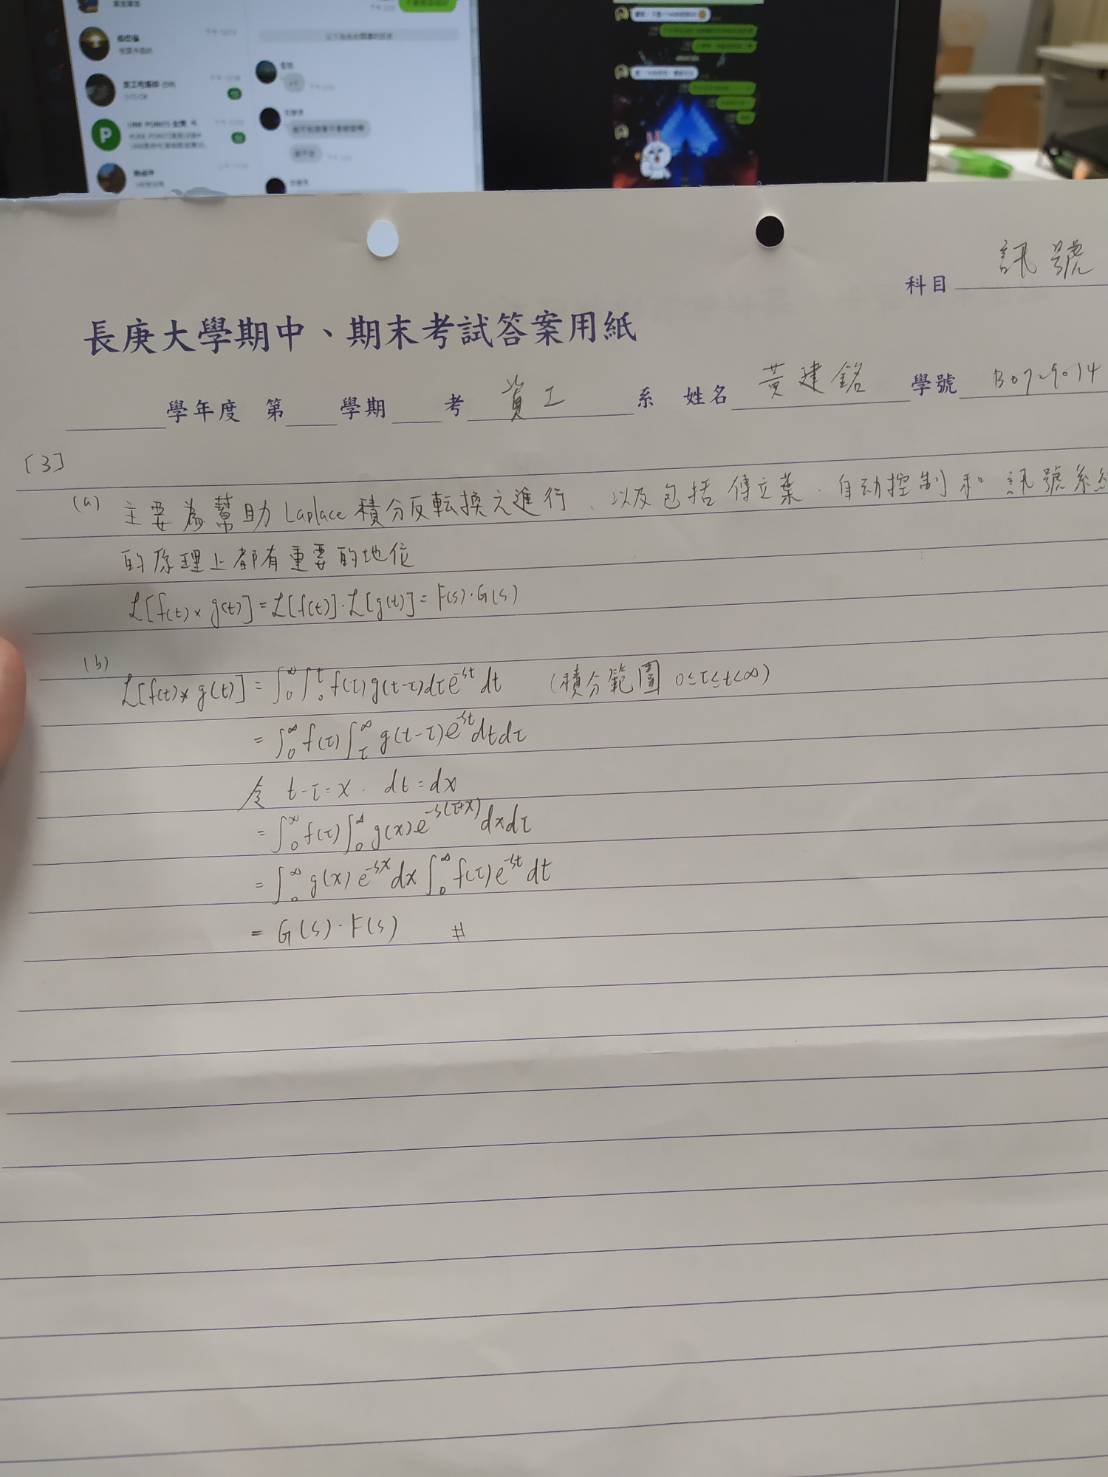 科目 訊號
長庚大學期中、期末考試答案用紙
學年度 第 學期 考 資工 系 姓名 黃建銘 學號
[3]
(a) 主要為幫助 Laplace 積分反転換之進行、以及包括傅立葉、自动控制和 訊號系統
的原理上都有重要的地位
ℒ[f(t)×g(t)] = ℒ[f(t)]·ℒ[g(t)] = F(s)·G(s)
(b)
ℒ[f(t)*g(t)] = ∫₀^∞∫₀^t f(τ)g(t-τ)dτe^{-st}dt (積分範圍 0≤τ≤t<∞)
= ∫₀^∞ f(τ)∫_τ^∞ g(t-τ)e^{-st}dtdτ
令 t-τ=x . dt=dx
= ∫₀^∞ f(τ)∫₀^∞ g(x)e^{-s(τ+x)}dxdτ
= ∫₀^∞ g(x)e^{-sx}dx∫₀^∞ f(τ)e^{-st}dt
= G(s)·F(s) #